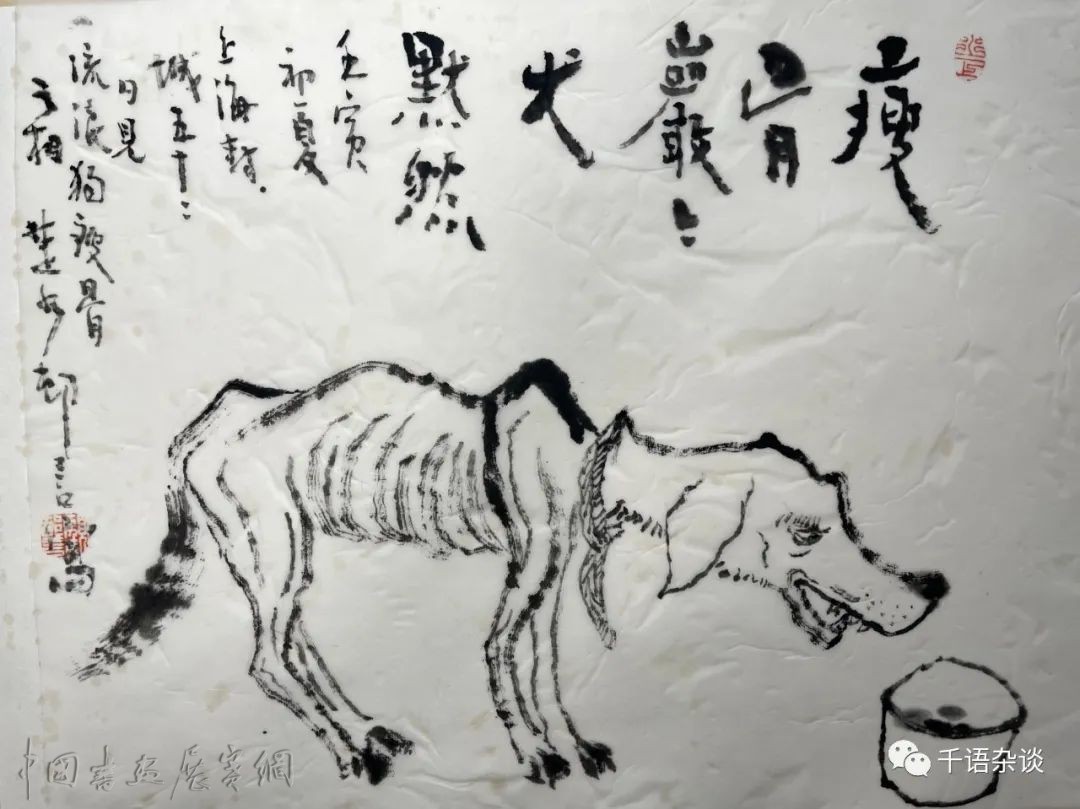 瘦
骨
巖〻
犬
默然
壬寅
初夏
上海封
城五十二
日見
一流浪狗瘦骨
之相
中國書畫展賽網
千语杂谈